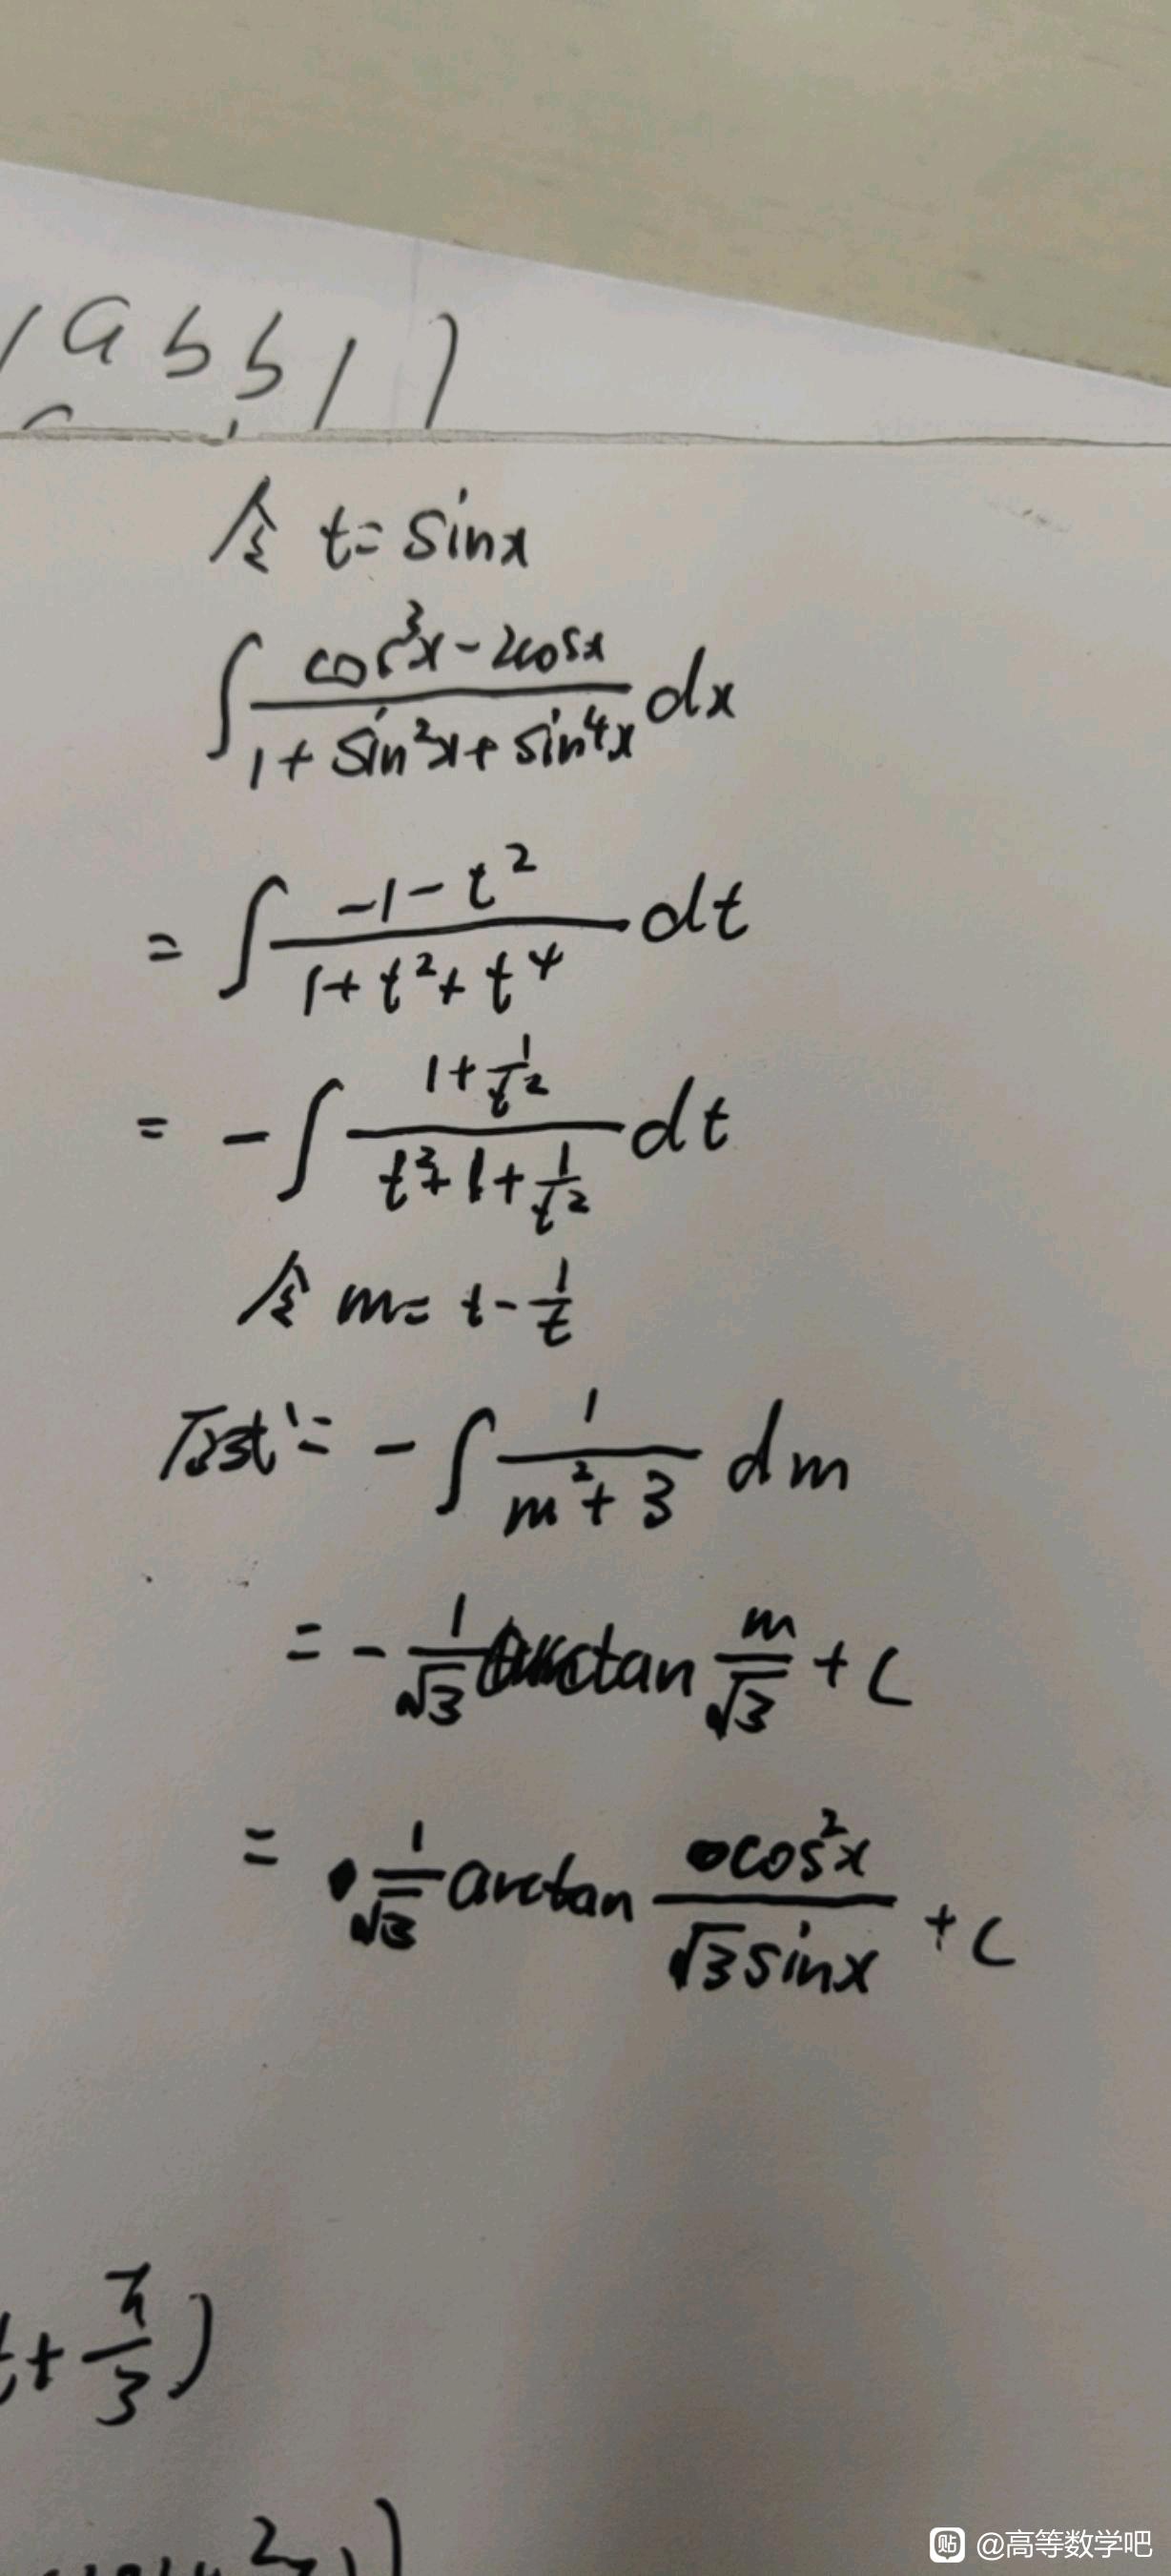 abb1)
令 t=sinx
∫ (cos³x-2cosx)/(1+sin²x+sin⁴x) dx
= ∫ (-1-t²)/(1+t²+t⁴) dt
= -∫ (1+1/t²)/(t²+1+1/t²) dt
令 m= t-1/t
原式= -∫ 1/(m²+3) dm
= -1/√3 arctan m/√3 +C
= 1/√3 arctan cos²x/(√3sinx) +C
t+π/3)
@高等数学吧